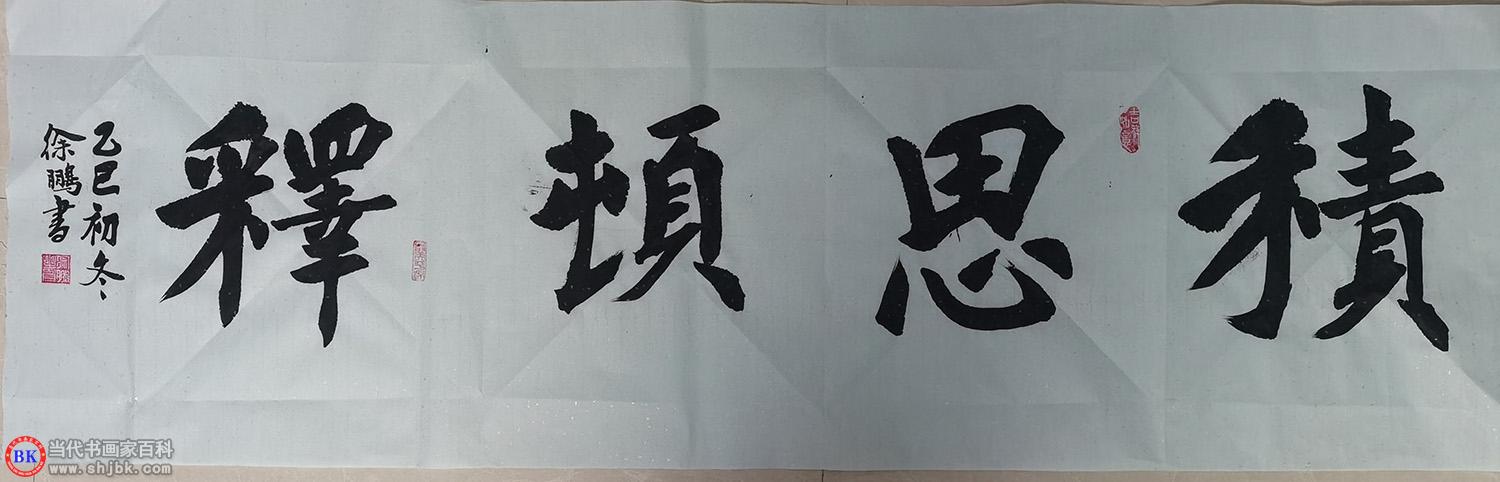 積思頓釋
乙巳初冬
徐鵬書
BK
当代书画家百科
www.shjbk.com